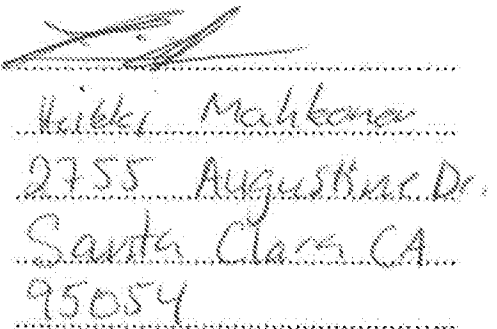 Heikki Mahkonen
2755 Augustine Dr.
Santa Clara CA
95054